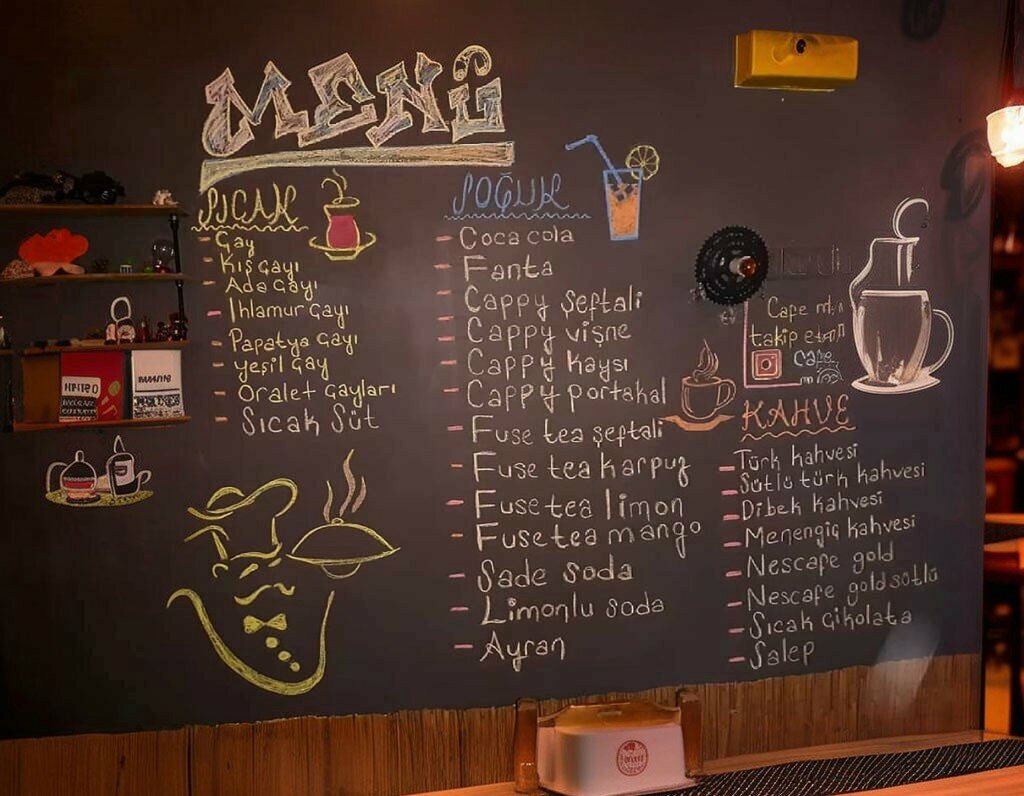 MENÜ
SICAK
Çay
Kış Çayı
Ada Çayı
Ihlamur Çayı
Papatya Çayı
Yeşil Çay
Oralet Çayları
Sıcak Süt
SOĞUK
Coca cola
Fanta
Cappy şeftali
Cappy vişne
Cappy kaysı
Cappy portakal
Fuse tea şeftali
Fuse tea karpuz
Fuse tea limon
Fuse tea mango
Sade soda
Limonlu soda
Ayran
Cafe
takip
cafe
KAHVE
Türk kahvesi
Sütlü türk kahvesi
Dibek kahvesi
Menengiç kahvesi
Nescafe gold
Nescafe gold sütlü
Sıcak Çikolata
Salep